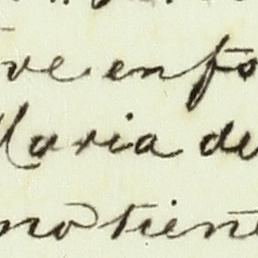 ve en fo
Maria de
no tiene